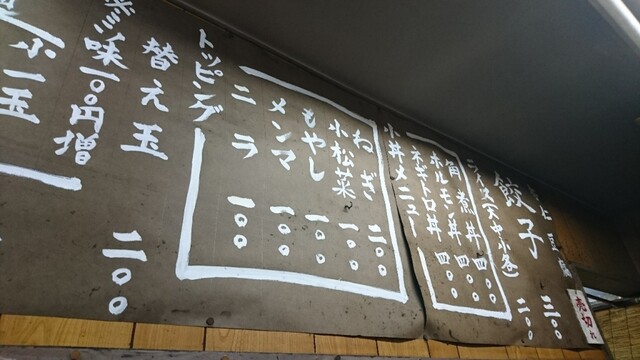 三〇〇
餃子 二〇〇
ライス 大 中 小 各
小丼メニュー
角煮丼 四〇〇
ホルモン丼 四〇〇
ネギトロ丼 四〇〇
トッピング
ねぎ 二〇〇
小松菜 一〇〇
もやし 一〇〇
メンマ 一〇〇
ニラ 一〇〇
替え玉 二〇〇
味一〇〇円増
小一玉
売切れ